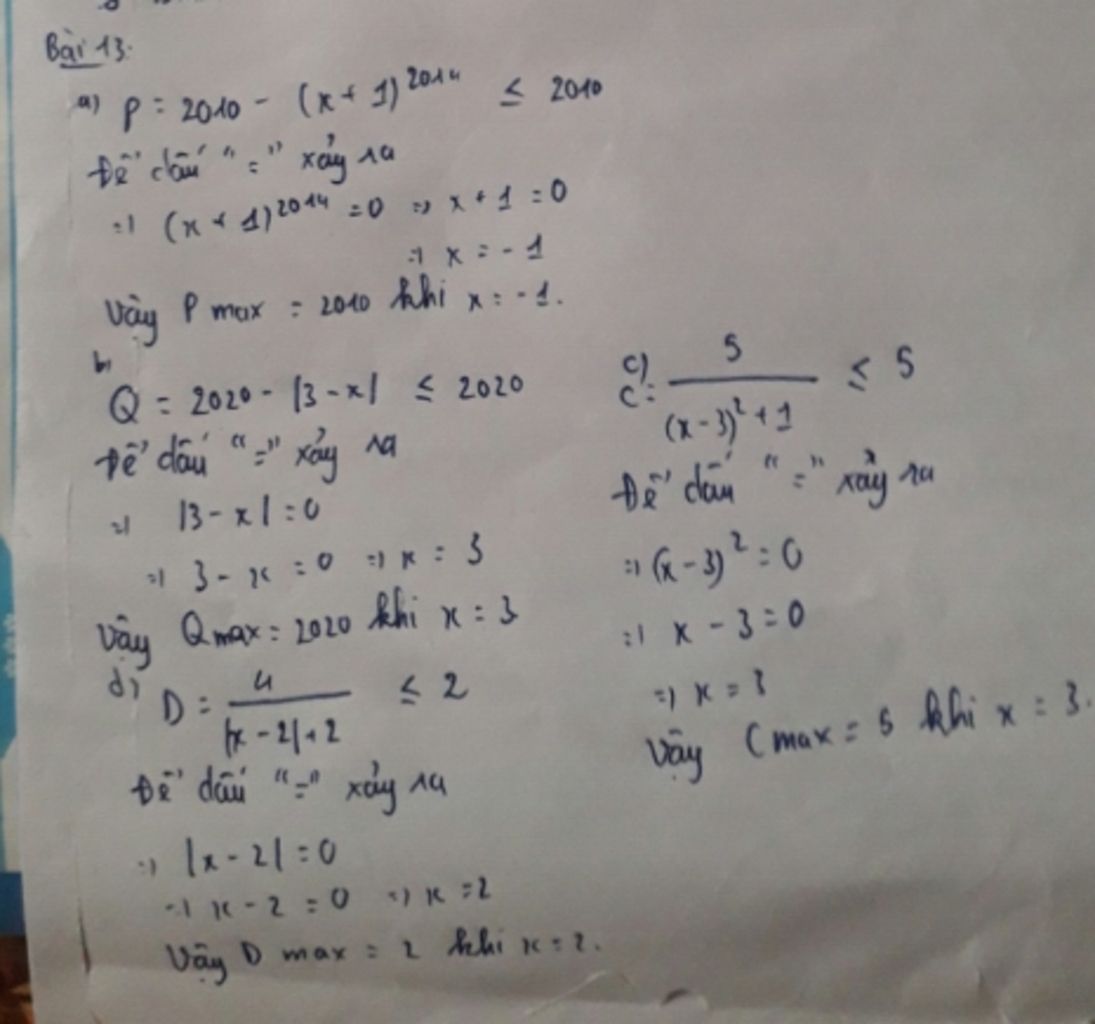 Bài 13:
a) P = 2010 - (x + 1)^2014 ≤ 2010
Để dấu "=" xảy ra
=> (x + 1)^2014 = 0 => x + 1 = 0
=> x = - 1
Vậy P max = 2010 khi x = -1.
b)
Q = 2020 - |3 - x| ≤ 2020
Để dấu "=" xảy ra
=> |3 - x| = 0
=> 3 - x = 0 => x = 3
Vậy Q max = 2020 khi x = 3
c)
C = 5 / ((x - 3)^2 + 1) ≤ 5
Để dấu "=" xảy ra
=> (x - 3)^2 = 0
=> x - 3 = 0
=> x = 3
Vậy C max = 5 khi x = 3.
d)
D = 4 / (|x - 2| + 2) ≤ 2
Để dấu "=" xảy ra
=> |x - 2| = 0
=> x - 2 = 0 => x = 2
Vậy D max = 2 khi x = 2.